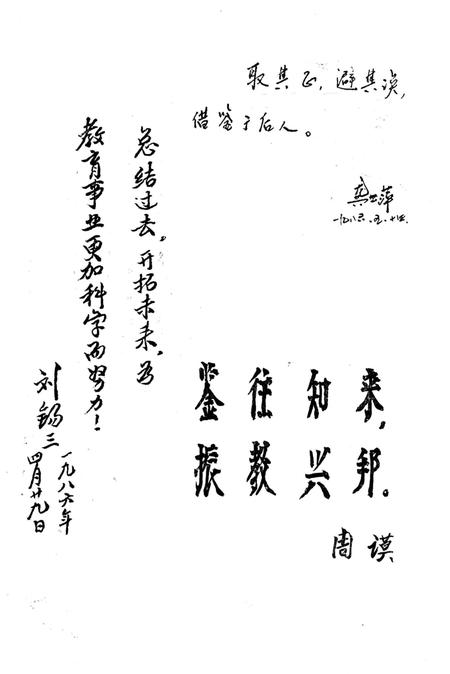 取其正，避其误，
借鉴于后人。
龚世萍
一九八六.五.十四.
鉴往知来，
振教兴邦。
周谟
总结过去，开拓未来，为
教育事业更加科学而努力！
刘锡三
一九八六年
四月廿九日